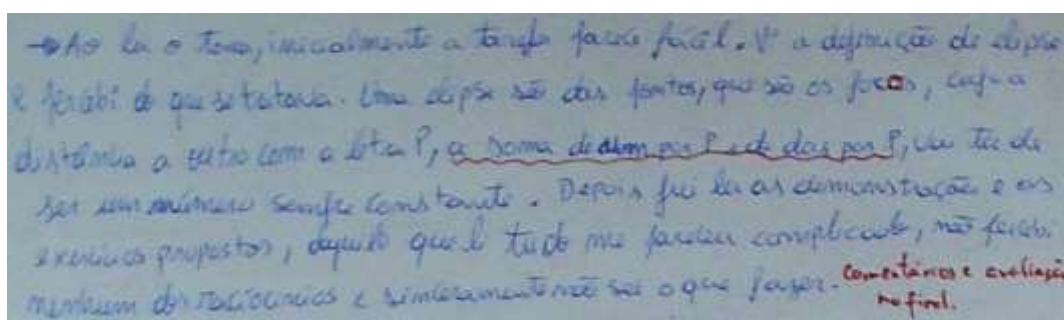 → Ao ler o tema, inicialmente a tarefa parece fácil. Vi a definição de elipse
e percebi do que se tratava. Uma elipse são dois pontos, que são os focos, cuja a
distância a outro com a letra P, a soma de um por P e de dois por P, vai ter de
ser um número sempre constante. Depois fui ler as demonstração e os
exercícios propostos, daquilo que li tudo me pareceu complicado, não percebi
nenhum dos raciocínios e sinceramente não sei o que fazer.
comentários e avaliação
no final.